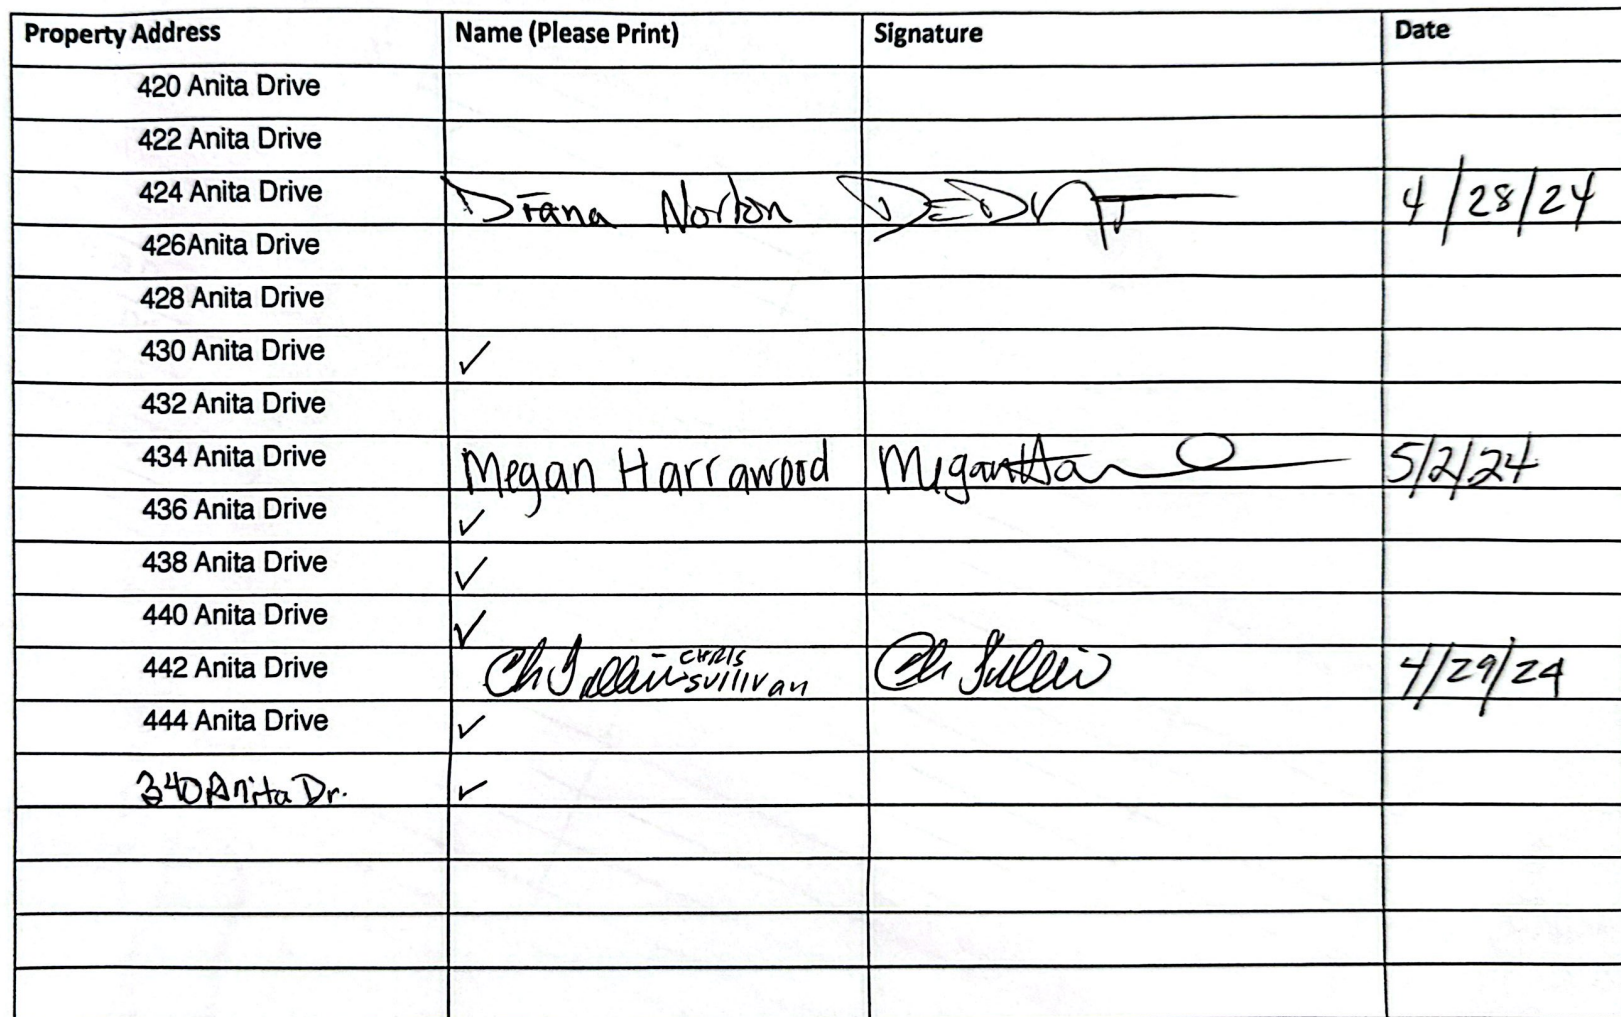 Property Address Name (Please Print) Signature Date
420 Anita Drive
422 Anita Drive
424 Anita Drive Diana Norton 4/28/24
426Anita Drive
428 Anita Drive
430 Anita Drive ✓
432 Anita Drive
434 Anita Drive Megan Harrawood Megan 5/2/24
436 Anita Drive ✓
438 Anita Drive ✓
440 Anita Drive ✓
442 Anita Drive - CHRIS SUllIVan 4/29/24
444 Anita Drive ✓
340 Anita Dr. ✓